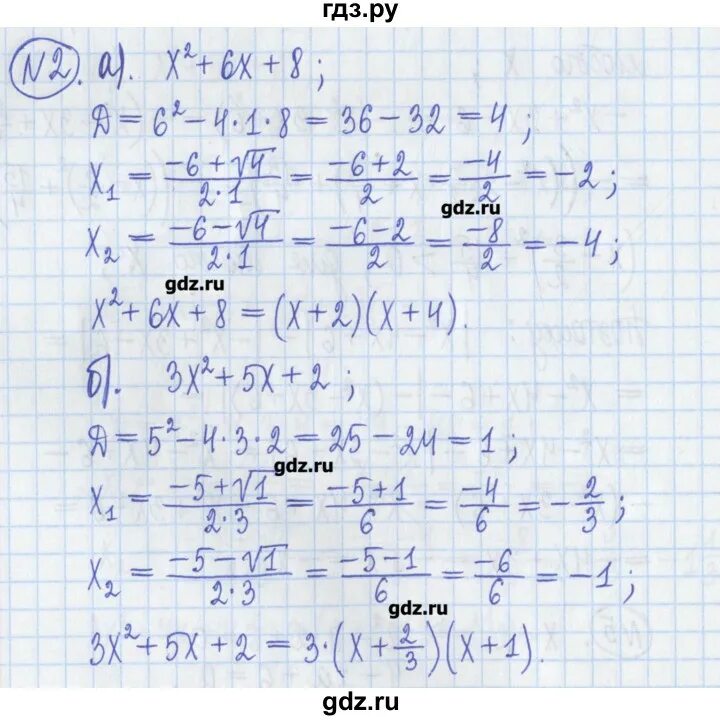 гдз.ру
№2. а). x² + 6x + 8 ;
Д = 6² - 4·1·8 = 36 - 32 = 4 ;
x₁ = (-6 + √4)/(2·1) = (-6+2)/2 = -4/2 = -2 ;
gdz.ru
x₂ = (-6 - √4)/(2·1) = (-6-2)/2 = -8/2 = -4 ;
gdz.ru
x² + 6x + 8 = (x + 2)(x + 4).
б). 3x² + 5x + 2 ;
Д = 5² - 4·3·2 = 25 - 24 = 1 ;
gdz.ru
x₁ = (-5 + √1)/(2·3) = (-5+1)/6 = -4/6 = -2/3 ;
x₂ = (-5 - √1)/(2·3) = (-5-1)/6 = -6/6 = -1 ;
gdz.ru
3x² + 5x + 2 = 3·(x + 2/3)(x + 1).
gdz.ru